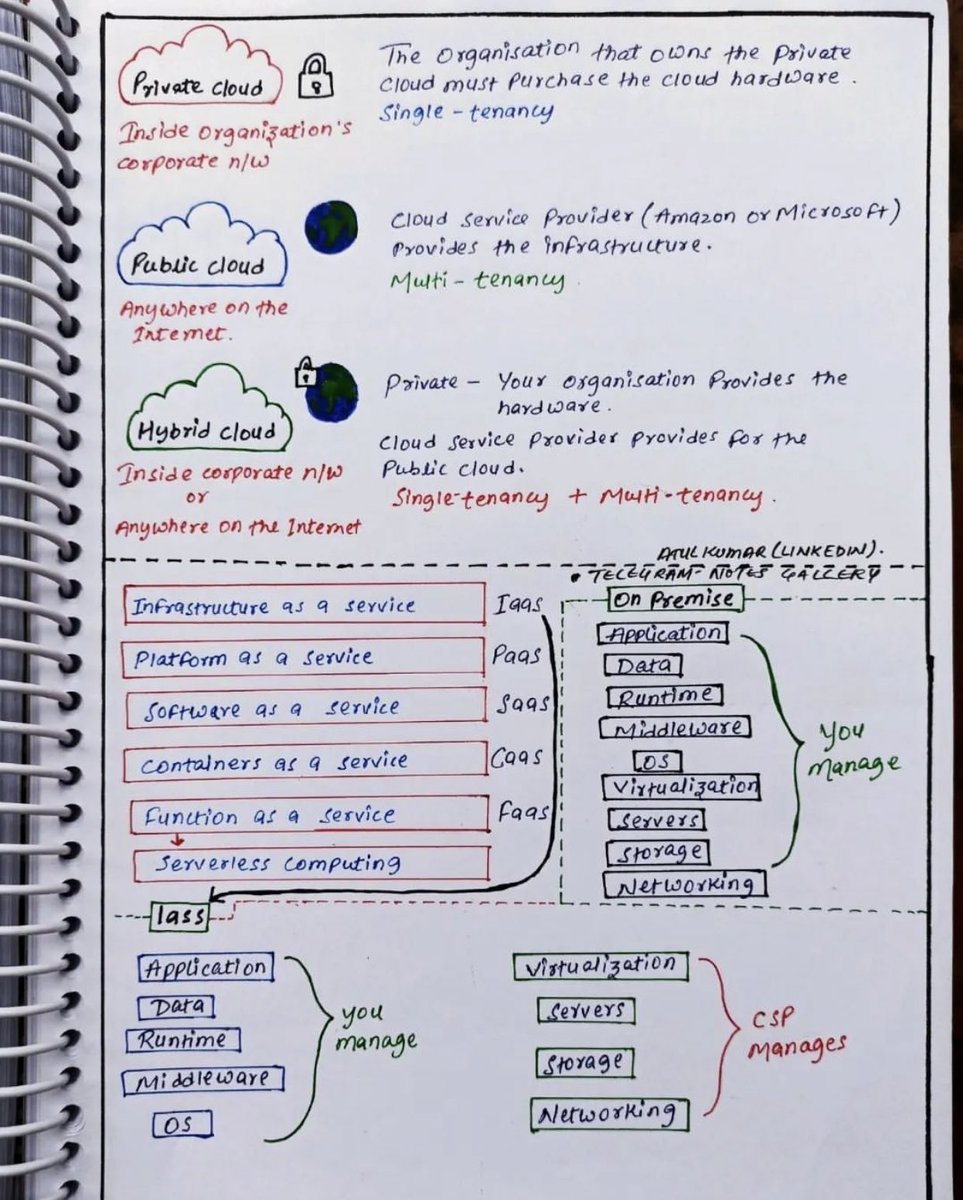 Private cloud
Inside Organization's
corporate n/w
The Organisation that owns the Private
Cloud must Purchase the cloud hardware.
Single - tenancy
Public cloud
Anywhere on the
Internet.
Cloud Service Provider (Amazon or Microsoft)
Provides the infrastructure.
Multi - tenancy
Hybrid cloud
Inside corporate n/w
or
Anywhere on the Internet
Private - Your Organisation Provides the
hardware.
Cloud Service Provider Provides for the
Public Cloud.
Single-tenancy + Multi-tenancy.
ATUL KUMAR (LINKEDIN).
• TELEGRAM- NOTES GALLERY
Infrastructure as a service Iaas
Platform as a service Paas
Software as a service Saas
Containers as a service Caas
Function as a service Faas
Serverless Computing
On Premise
Application
Data
Runtime
Middleware
OS
Virtualization
Servers
Storage
Networking
You
Manage
Iass
Application
Data
Runtime
Middleware
OS
you
manage
Virtualization
Servers
Storage
Networking
CSP
Manages